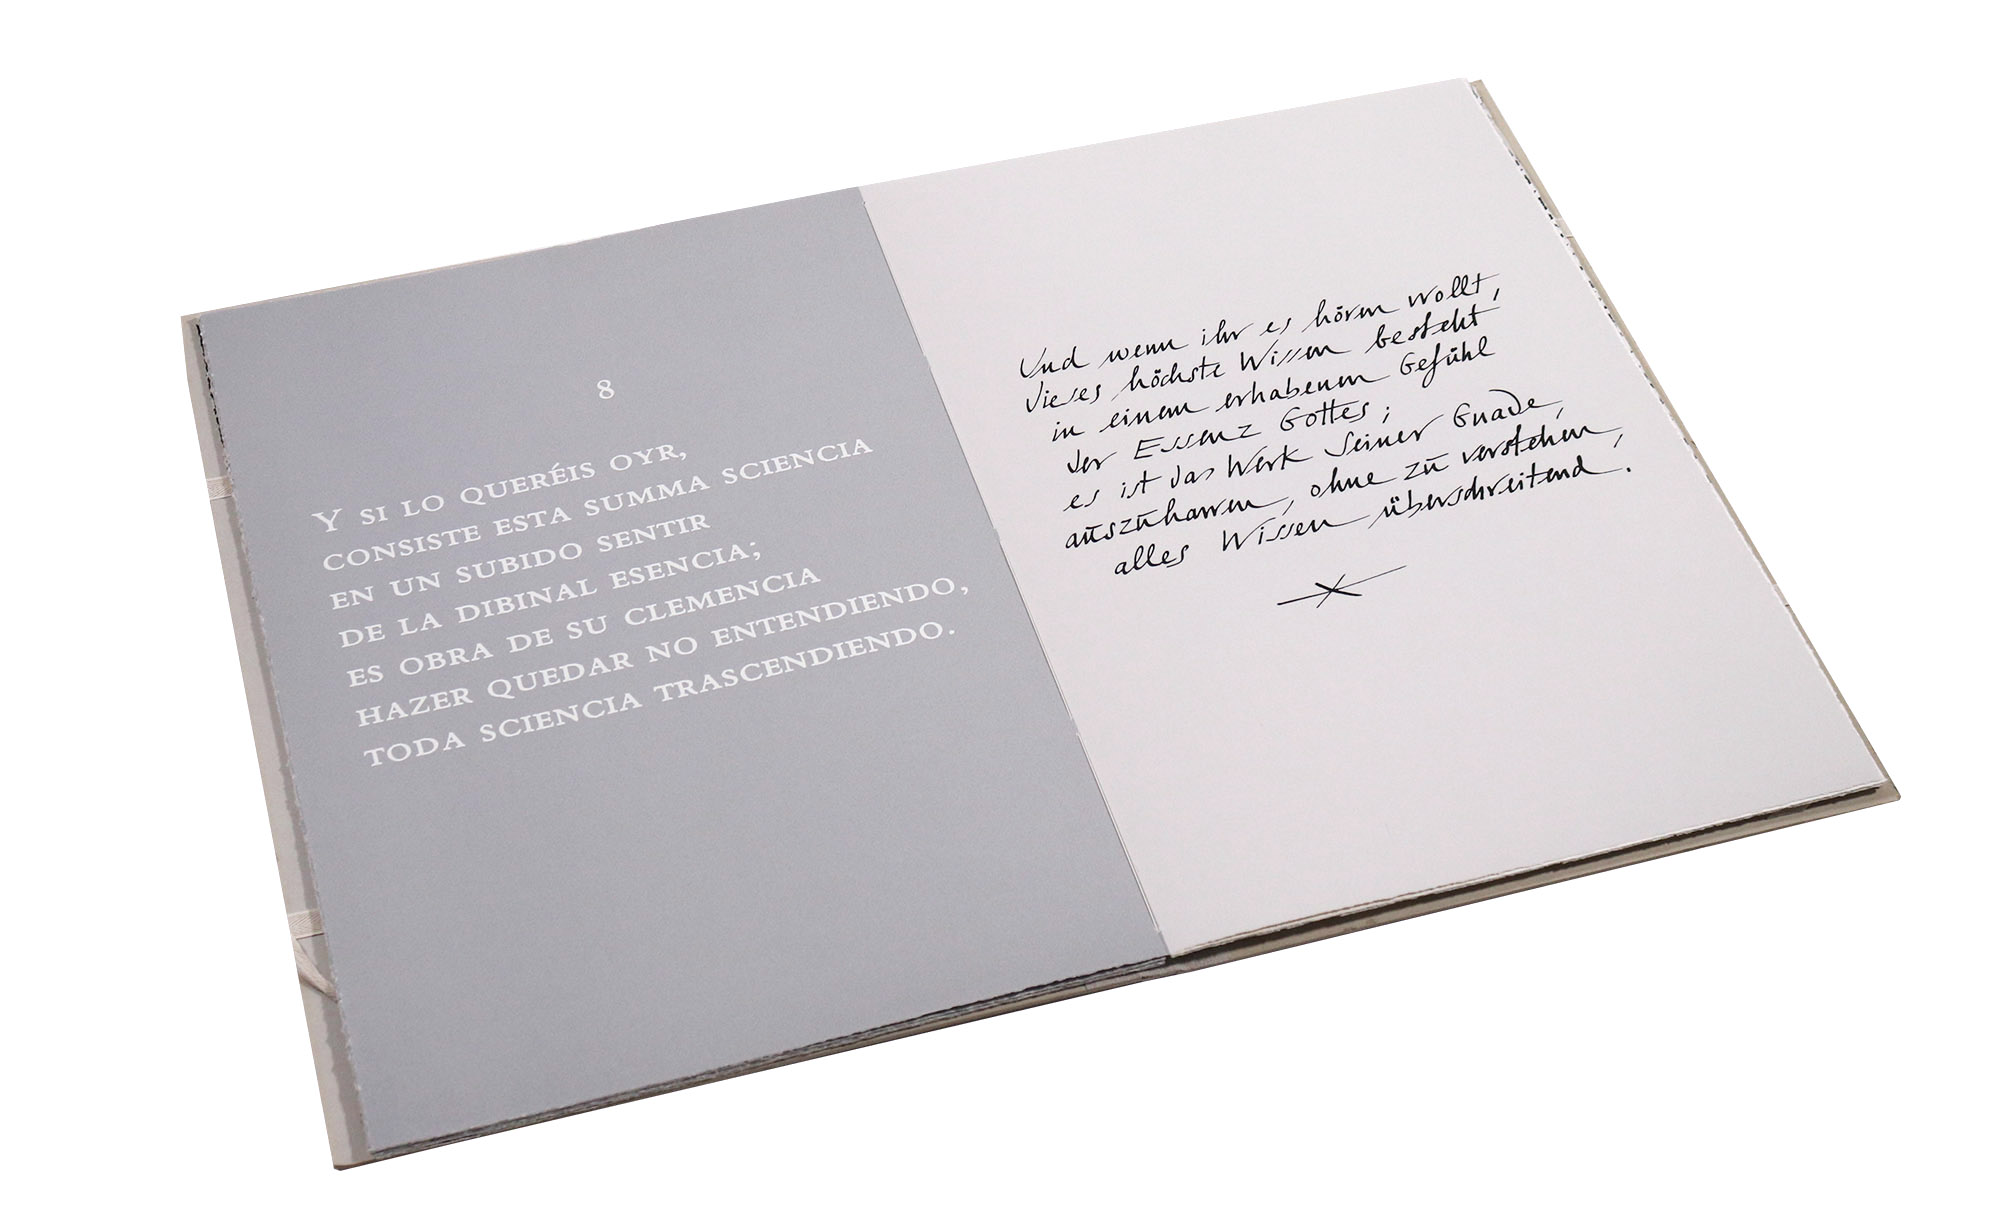 8
Y SI LO QUERÉIS OYR,
CONSISTE ESTA SUMMA SCIENCIA
EN UN SUBIDO SENTIR
DE LA DIBINAL ESENCIA;
ES OBRA DE SU CLEMENCIA
HAZER QUEDAR NO ENTENDIENDO,
TODA SCIENCIA TRASCENDIENDO.
Und wenn ihr es hören wollt,
dieses höchste Wissen besteht
in einem erhabenen Gefühl
der Essenz Gottes;
es ist das Werk Seiner Gnade,
auszuharren, ohne zu verstehen,
alles Wissen überschreitend.